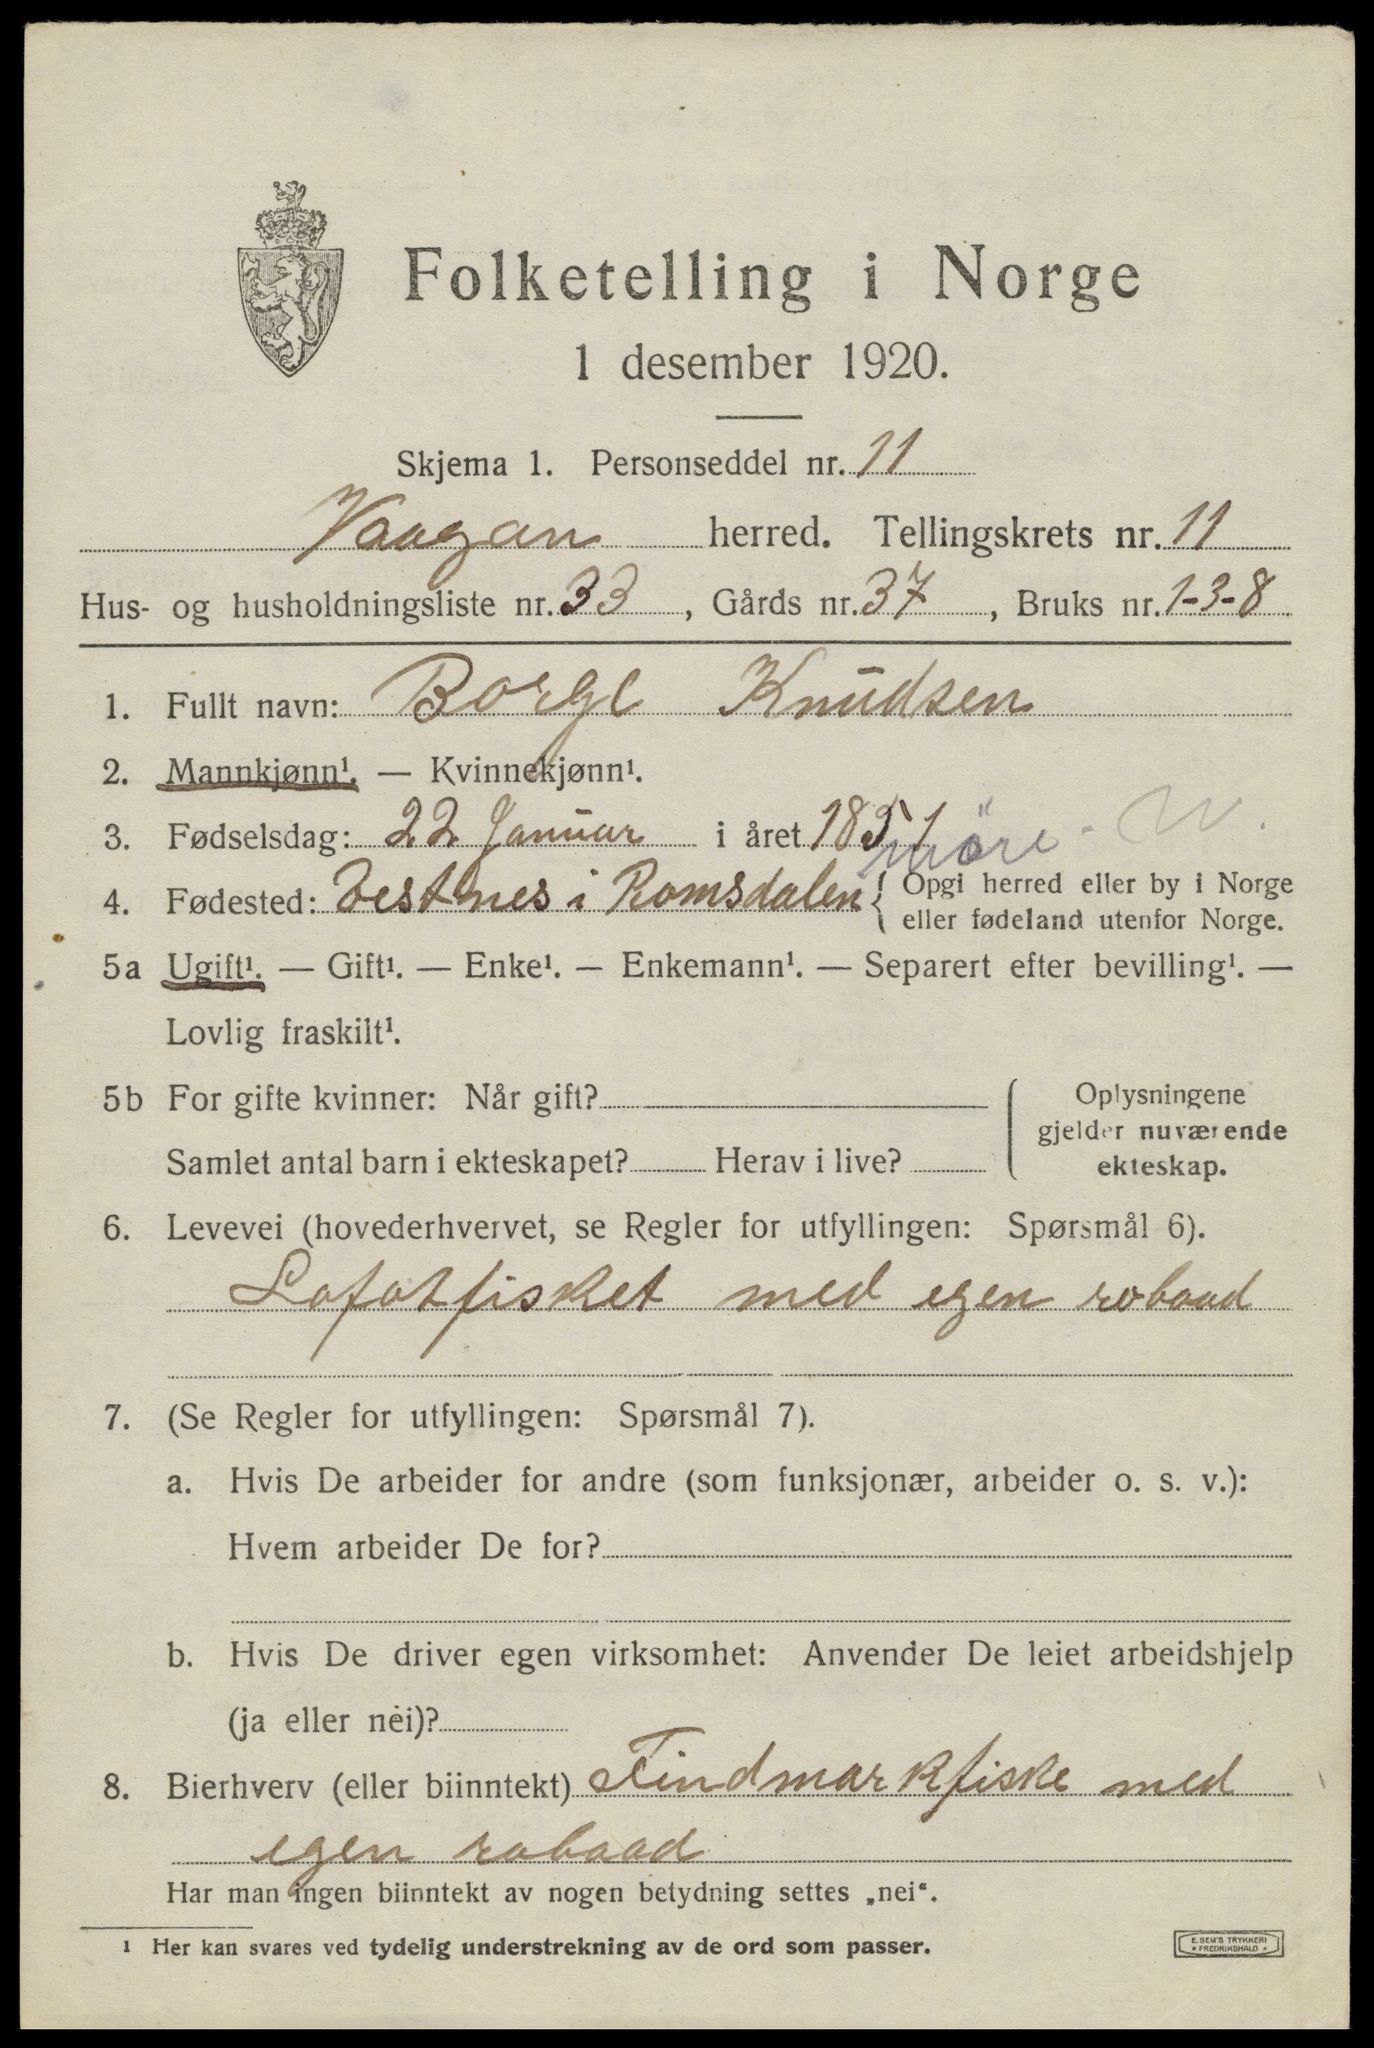 Folketelling i Norge
1 desember 1920.
Skjema 1. Personseddel nr. 11
Vaagan herred. Tellingskrets nr. 11
Hus- og husholdningsliste nr. 33, Gårds nr. 37, Bruks nr. 1-3-8
1. Fullt navn: Borge Knudsen
2. Mannkjønn¹. — Kvinnekjønn¹.
3. Fødselsdag: 22 Januar i året 1851
Möre
4. Fødested: Vestnes i Romsdalen { Opgi herred eller by i Norge
eller fødeland utenfor Norge.
5a Ugift¹. — Gift¹. — Enke¹. — Enkemann¹. — Separert efter bevilling¹. —
Lovlig fraskilt¹.
5b For gifte kvinner: Når gift?
Samlet antal barn i ekteskapet? Herav i live?
Oplysningene
gjelder nuværende
ekteskap.
6. Levevei (hovederhvervet, se Regler for utfyllingen: Spørsmål 6).
Lofotfisket med egen robaad
7. (Se Regler for utfyllingen: Spørsmål 7).
a. Hvis De arbeider for andre (som funksjonær, arbeider o. s. v.):
Hvem arbeider De for?
b. Hvis De driver egen virksomhet: Anvender De leiet arbeidshjelp
(ja eller nei)?
8. Bierhverv (eller biinntekt) Findmarkfiske med
egen robaad
Har man ingen biinntekt av nogen betydning settes „nei“.
¹ Her kan svares ved tydelig understrekning av de ord som passer.
E. SEM'S TRYKKERI
• FREDRIKSHALD •